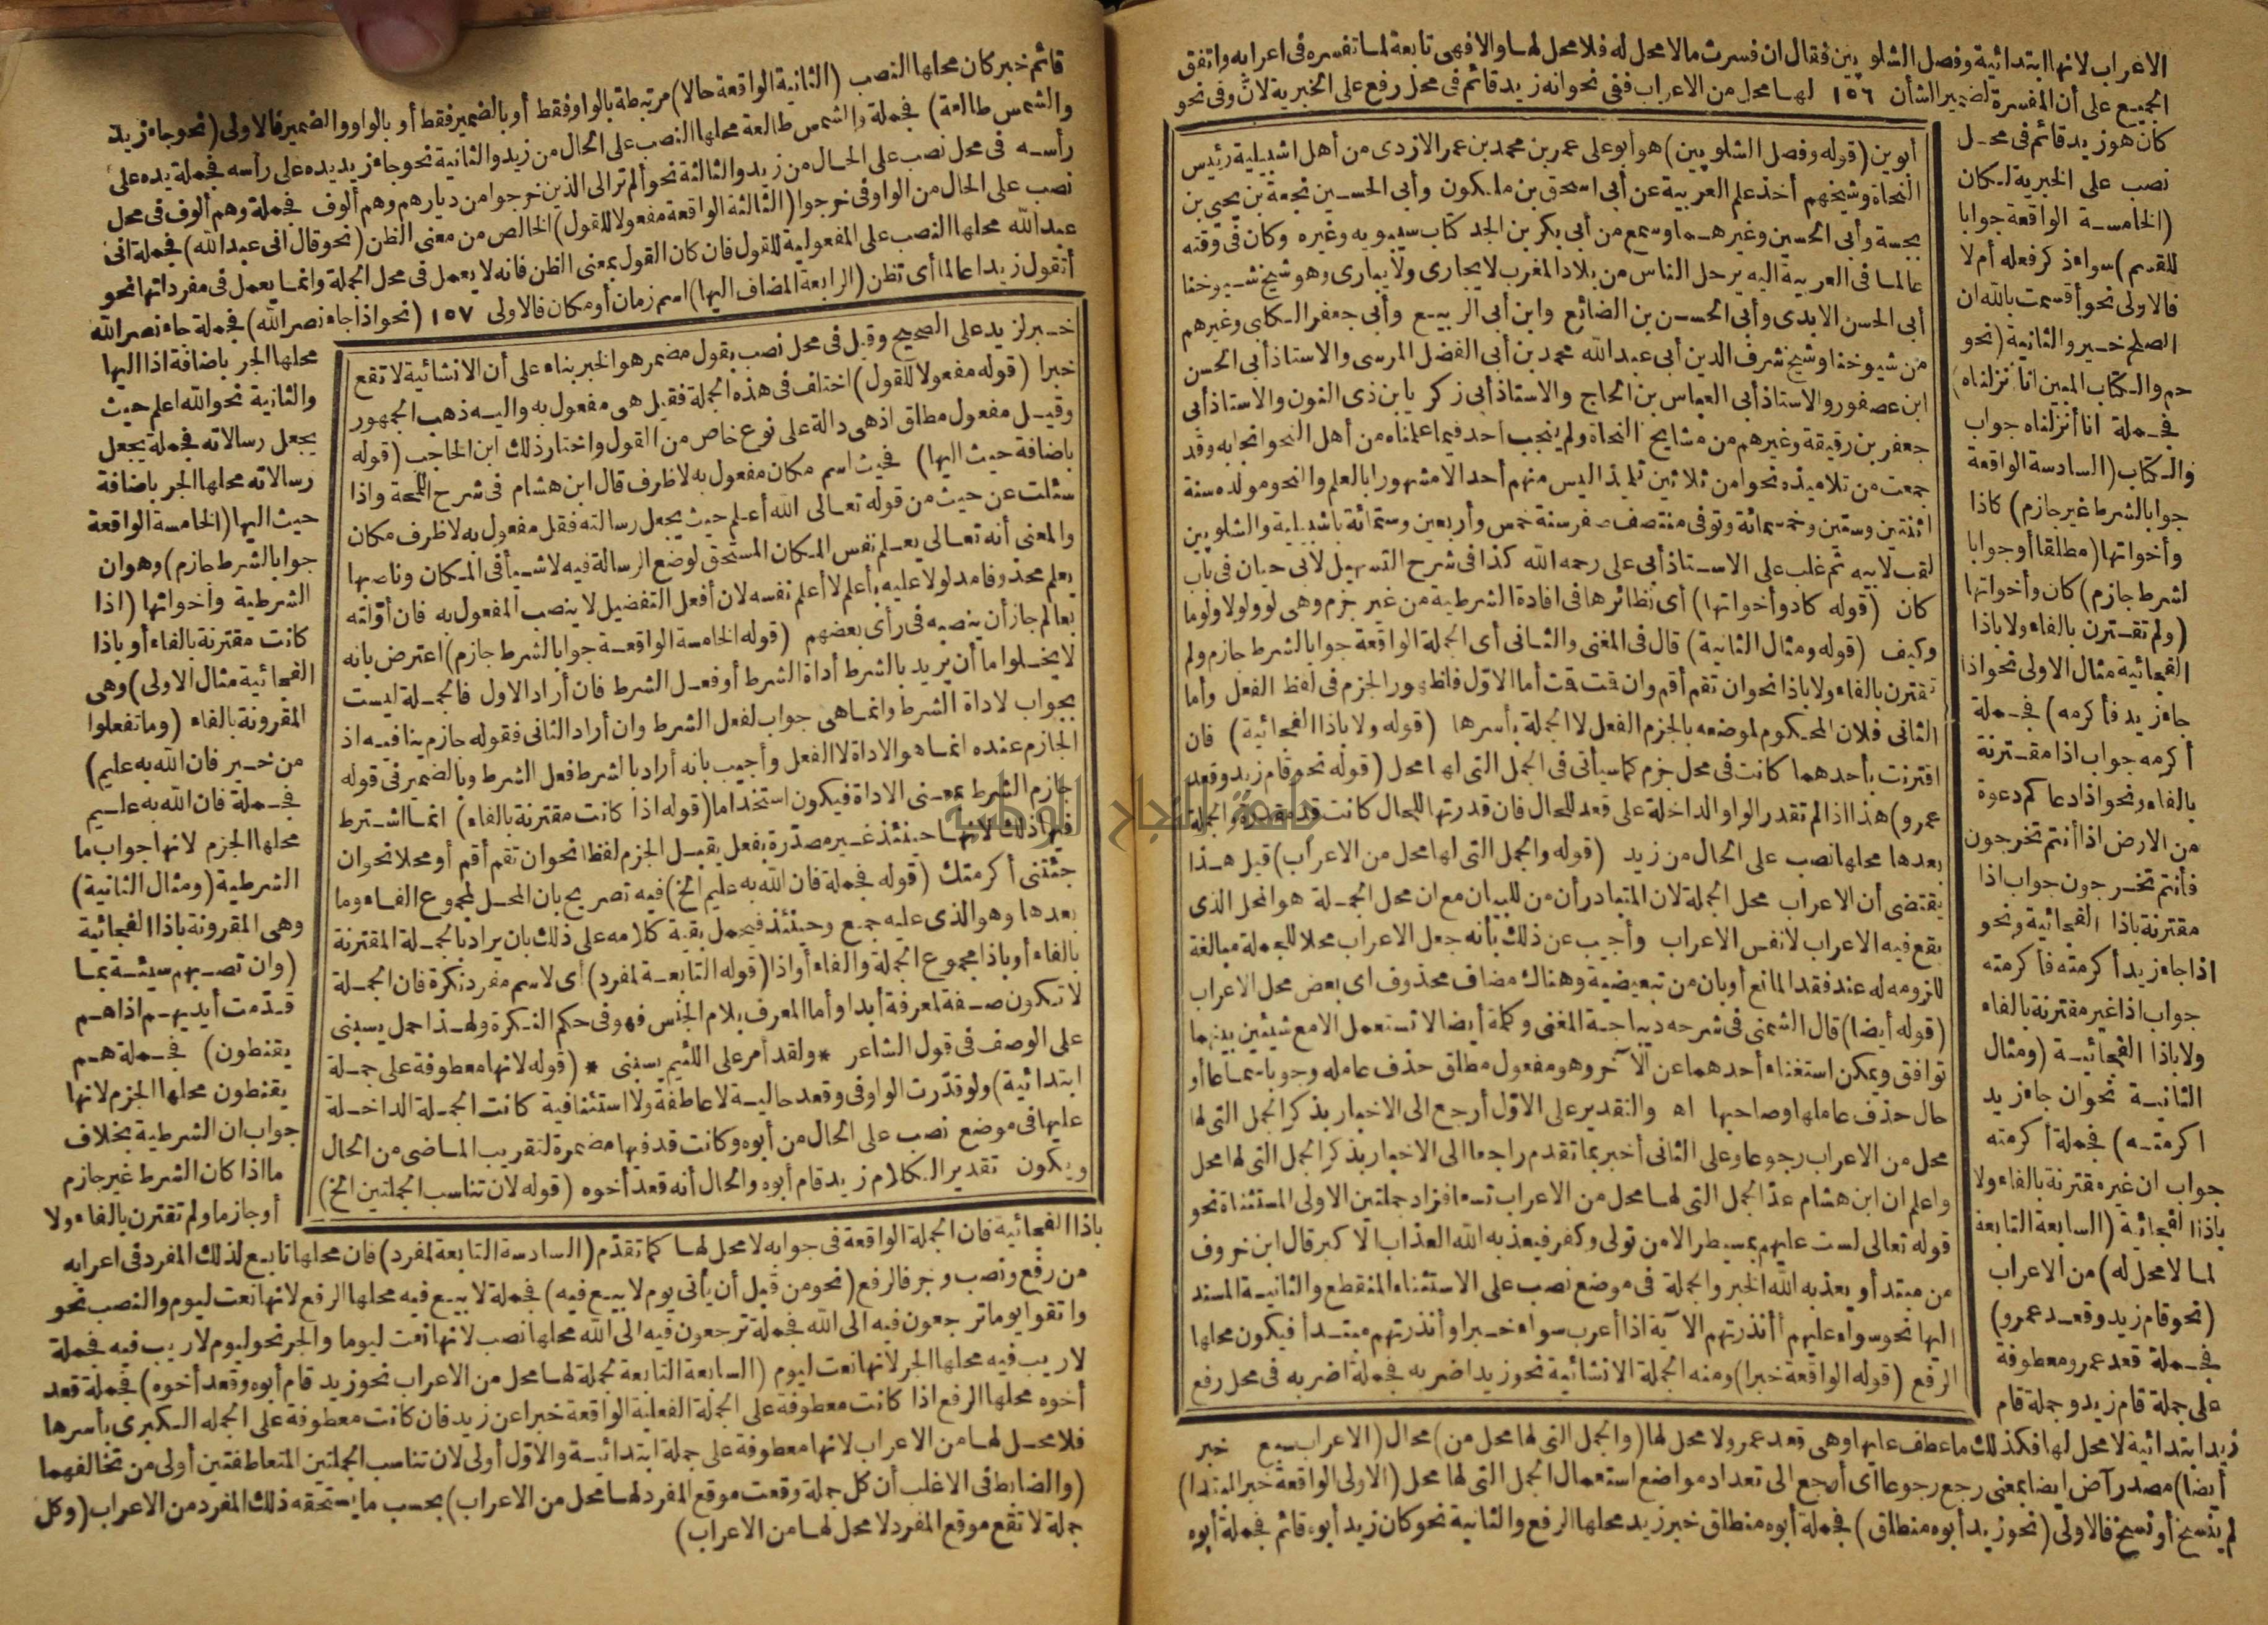 الاعراب لانها ابتدائية وفصل الشلوبين فقال ان فسرت مالا محل له فلا محل لها والا فهى تابعة لما تفسره فى اعرابه واتفق
الجميع على أن المفسرة لضمير الشأن ١٥٦ لها محل من الاعراب ففى نحو انه زيد قائم فى محل رفع على الخبرية لان وفى نحو
كان هو زيد قائم فى محل
نصب على الخبرية لكان
(الخامسة الواقعة جوابا
للقسم) سواء ذكر فعله أم لا
فالاولى نحو أقسمت بالله ان
الصلح خير والثانية (نحو
حم والكتاب المبين انا أنزلناه)
فجملة انا أنزلناه جواب
والكتاب (السادسة الواقعة
جوابا لشرط غير جازم) كاذا
وأخواتها (مطلقا أو جوابا
لشرط جازم) كان وأخواتها
(ولم تقترن بالفاء ولا باذا
الفجائية مثال الاولى نحو اذا
جاء زيد فأكرمه) فجملة
أكرمه جواب اذا مقترنة
بالفاء ونحو اذا دعاكم دعوة
من الارض اذا أنتم تخرجون
فأنتم تخرجون جواب اذا
مقترنة باذا الفجائية ونحو
اذا جاء زيد أكرمته فأكرمته
جواب اذا غير مقترنة بالفاء
ولا باذا الفجائية (ومثال
الثانية نحو ان جاء زيد
اكرمته) فجملة أكرمته
جواب ان غير مقترنة بالفاء ولا
باذا الفجائية (السابعة التابعة
لما لا محل له) من الاعراب
(نحو قام زيد وقعد عمرو)
فجملة قعد عمرو معطوفة
على جملة قام زيد وجملة قام
أبو بن (قوله وفصل الشلوبين) هو أبو على عمر بن محمد بن عمر الازدى من أهل اشبيلية رئيس
النحاة وشيخهم أخذ علم العربية عن أبى اسحق بن ملكون وأبى الحسين نجبة بن يحيى بن
وأبى الحسين وغيرهما وسمع من أبى بكر بن الجد كتاب سيبويه وغيره وكان فى وقته
عالما فى العربية اليه يرحل الناس من بلاد المغرب لا يجارى ولا يبارى وهو شيخ شيوخنا
أبى الحسن الابدى وأبى الحسن بن الضائع وابن أبى الربيع وأبى جعفر وغيرهم
من شيوخنا وشيخ شرف الدين أبى عبد الله محمد بن أبى الفضل المرسى والاستاذ أبى الحسن
ابن عصفور والاستاذ أبى العباس بن الحاج والاستاذ أبى زكريا بن ذى النون والاستاذ أبى
جعفر بن رقيقة وغيرهم من مشايخ النحاة ولم ينجب أحد فيما علمناه من أهل النحو انجابه وقد
جمعت من تلاميذه نحوا من ثلاثين تلميذا ليس منهم أحد الا مشهورا بالعلم والنحو ومولده سنة
اثنتين وستين وخمسمائة وتوفى منتصف صفر سنة خمس وأربعين وستمائة باشبيلية والشلوبين
لقب لابيه ثم غلب على الاستاذ أبى على رحمه الله كذا فى شرح التسهيل لأبى حيان فى باب
كان (قوله كاذا وأخواتها) أى نظائرها فى افادة الشرطية من غير جزم وهى لو ولولا ولوما
وكيف (قوله ومثال الثانية) قال فى المغنى والثانى أى الجملة الواقعة جوابا لشرط جازم ولم
تقترن بالفاء ولا باذا نحو ان تقم أقم وان قمت قمت أما الاول فلظهور الجزم فى لفظ الفعل وأما
الثانى فلان المحكوم لموضعه بالجزم الفعل لا الجملة بأسرها (قوله ولا باذا الفجائية) فان
اقترنت بأحدهما كانت فى محل جزم كما سيأتى فى الجمل التى لها محل (قوله نحو قام زيد وقعد
عمرو) هذا اذا لم تقدر الواو الداخلة على قعد للحال فان قدرتها للحال كانت قد مقدرة والجملة
بعدها محلها نصب على الحال من زيد (قوله والجمل التى لها محل من الاعراب) قيل هذا
يقتضى أن الاعراب محل الجملة لان المتبادر أن من للبيان مع ان محل الجملة هو المحل الذى
يقع فيه الاعراب لا نفس الاعراب وأجيب عن ذلك بأنه جعل الاعراب محلا للجملة مبالغة
للزومه له عند فقد المانع أو بان من تبعيضية وهناك مضاف محذوف اى بعض محل الاعراب
(قوله أيضا) قال الشمنى فى شرحه ديباجة المغنى وكلمة أيضا لا تستعمل الا مع شيئين بينهما
توافق ويمكن استغناء أحدهما عن الآخر وهو مفعول مطلق حذف عامله وجوبا سماعا أو
حال حذف عاملها وصاحبها اه والتقدير على الاول أرجع الى الاخبار بذكر الجمل التى لها
محل من الاعراب رجوعا وعلى الثانى أخبر بما تقدم راجعا الى الاخبار بذكر الجمل التى لها محل
واعلم ان ابن هشام عد الجمل التى لها محل من الاعراب تسعا فزاد جملتين الاولى المستثناة نحو
قوله تعالى لست عليهم بمسيطر الا من تولى وكفر فيعذبه الله العذاب الاكبر قال ابن خروف
من مبتدأ ويعذبه الله الخبر والجملة فى موضع نصب على الاستثناء المنقطع والثانية المسند
اليها نحو سواء عليهم أأنذرتهم الآية اذا أعرب سواء خبرا وأنذرتهم مبتدأ فيكون محلها
الرفع (قوله الواقعة خبرا) ومنه الجملة الانشائية نحو زيد اضربه فجملة اضربه فى محل رفع
زيد ابتدائية لا محل لها فكذلك ما عطف عليها وهى قعد عمرو لا محل لها (والجمل التى لها محل من) محال (الاعراب سبع خبر
أيضا) مصدر آض ايضا بمعنى رجع رجوعا أى أرجع الى تعداد مواضع استعمال الجمل التى لها محل (الاولى الواقعة خبر المبتدا)
لم ينسخ أو نسخ فالاولى (نحو زيد أبوه منطلق) فجملة أبوه منطلق خبر زيد محلها الرفع والثانية نحو كان زيد أبوه قائم فجملة أبوه
قائم خبر كان محلها النصب (الثانية الواقعة حالا) مرتبطة بالواو فقط أو بالضمير فقط أو بالواو والضمير فالاولى (نحو جاء زيد
والشمس طالعة) فجملة والشمس طالعة محلها النصب على الحال من زيد والثانية نحو جاء زيد يده على رأسه فجملة يده على
رأسه فى محل نصب على الحال من زيد والثالثة نحو ألم تر الى الذين خرجوا من ديارهم وهم ألوف فجملة وهم ألوف فى محل
نصب على الحال من الواو فى خرجوا (الثالثة الواقعة مفعولا للقول) الخالص من معنى الظن (نحو قال انى عبد الله) فجملة انى
عبد الله محلها النصب على المفعولية للقول فان كان القول بمعنى الظن فانه لا يعمل فى محل الجملة وانما يعمل فى مفرداتها نحو
أتقول زيدا عالما أى تظن (الرابعة المضاف اليها) اسم زمان أو مكان فالاولى ١٥٧ (نحو اذا جاء نصر الله) فجملة جاء نصر الله
محلها الجر باضافة اذا اليها
والثانية نحو الله اعلم حيث
يجعل رسالاته فجملة يجعل
رسالاته محلها الجر باضافة
حيث اليها (الخامسة الواقعة
جوابا لشرط جازم) وهو ان
الشرطية وأخواتها (اذا
كانت مقترنة بالفاء أو باذا
الفجائية مثال الاولى) وهى
المقرونة بالفاء (وما تفعلوا
من خير فان الله به عليم)
فجملة فان الله به عليم
محلها الجزم لانها جواب ما
الشرطية (ومثال الثانية)
وهى المقرونة باذا الفجائية
(وان تصبهم سيئة بما
قدمت أيديهم اذا هم
يقنطون) فجملة هم
يقنطون محلها الجزم لانها
جواب ان الشرطية بخلاف
ما اذا كان الشرط غير جازم
أو جازما ولم تقترن بالفاء ولا
خبر لزيد على الصحيح وقيل فى محل نصب بقول مضمر هو الخبر بناء على أن الانشائية لا تقع
خبرا (قوله مفعولا للقول) اختلف فى هذه الجملة فقيل هى مفعول به واليه ذهب الجمهور
وقيل مفعول مطلق اذ هى دالة على نوع خاص من القول واختار ذلك ابن الحاجب (قوله
باضافة حيث اليها) فحيث اسم مكان مفعول به لا ظرف قال ابن هشام فى شرح اللمحة واذا
سئلت عن حيث من قوله تعالى الله أعلم حيث يجعل رسالته فقل مفعول به لا ظرف مكان
والمعنى أنه تعالى يعلم نفس المكان المستحق لوضع الرسالة فيه لا شيأ فى المكان وناصبها
يعلم محذوفا مدلولا عليه بأعلم لا أعلم نفسه لان أفعل التفضيل لا ينصب المفعول به فان أولته
بعالم جاز أن ينصبه فى رأى بعضهم (قوله الخامسة الواقعة جوابا لشرط جازم) اعترض بانه
لا يخلو اما أن يريد بالشرط أداة الشرط أو فعل الشرط فان أراد الاول فالجملة ليست
بجواب لاداة الشرط وانما هى جواب لفعل الشرط وان أراد الثانى فقوله جازم ينافيه اذ
الجازم عنده انما هو الاداة لا الفعل وأجيب بانه أراد بالشرط فعل الشرط وبالضمير فى قوله
جازم الشرط بمعنى الاداة فيكون استخداما (قوله اذا كانت مقترنة بالفاء) انما اشترط
فيها ذلك لانها حينئذ غير مصدرة بفعل يقبل الجزم لفظا نحو ان تقم أقم أو محلا نحو ان
جئتنى أكرمتك (قوله فجملة فان الله به عليم الخ) فيه تصريح بان المحل لمجموع الفاء وما
بعدها وهو الذى عليه جمع وحينئذ فيحمل بقية كلامه على ذلك بان يراد بالجملة المقترنة
بالفاء أو باذا مجموع الجملة والفاء أو اذا (قوله التابعة لمفرد) أى لاسم مفرد نكرة فان الجملة
لا تكون صفة لمعرفة أبدا وأما المعرف بلام الجنس فهو فى حكم النكرة ولهذا حمل يسبنى
على الوصف فى قول الشاعر * ولقد أمر على اللئيم يسبنى * (قوله لانها معطوفة على جملة
ابتدائية) ولو قدرت الواو فى وقعد حالية لا عاطفة ولا استئنافية كانت الجملة الداخلة
عليها فى موضع نصب على الحال من أبوه وكانت قد فيها مضمرة لتقريب الماضى من الحال
ويكون تقدير الكلام زيد قام أبوه والحال أنه قعد أخوه (قوله لان تناسب الجملتين الخ)
باذا الفجائية فان الجملة الواقعة فى جوابه لا محل لها كما تقدم (السادسة التابعة لمفرد) فان محلها تابع لذلك المفرد فى اعرابه
من رفع ونصب وجر فالرفع (نحو من قبل أن يأتى يوم لا بيع فيه) فجملة لا بيع فيه محلها الرفع لانها نعت ليوم والنصب نحو
واتقوا يوما ترجعون فيه الى الله فجملة ترجعون فيه الى الله محلها نصب لانها نعت ليوما والجر نحو ليوم لا ريب فيه فجملة
لا ريب فيه محلها الجر لانها نعت ليوم (السابعة التابعة لجملة لها محل من الاعراب نحو زيد قام أبوه وقعد أخوه) فجملة قعد
أخوه محلها الرفع اذا كانت معطوفة على الجملة الفعلية الواقعة خبرا عن زيد فان كانت معطوفة على الجملة الكبرى بأسرها
فلا محل لها من الاعراب لانها معطوفة على جملة ابتدائية والاول أولى لان تناسب الجملتين المتعاطفتين أولى من تخالفهما
(والضابط فى الاغلب أن كل جملة وقعت موقع المفرد لها محل من الاعراب) بحسب ما يستحقه ذلك المفرد من الاعراب (وكل
جملة لا تقع موقع المفرد لا محل لها من الاعراب)
جامعة النجاح الوطنية